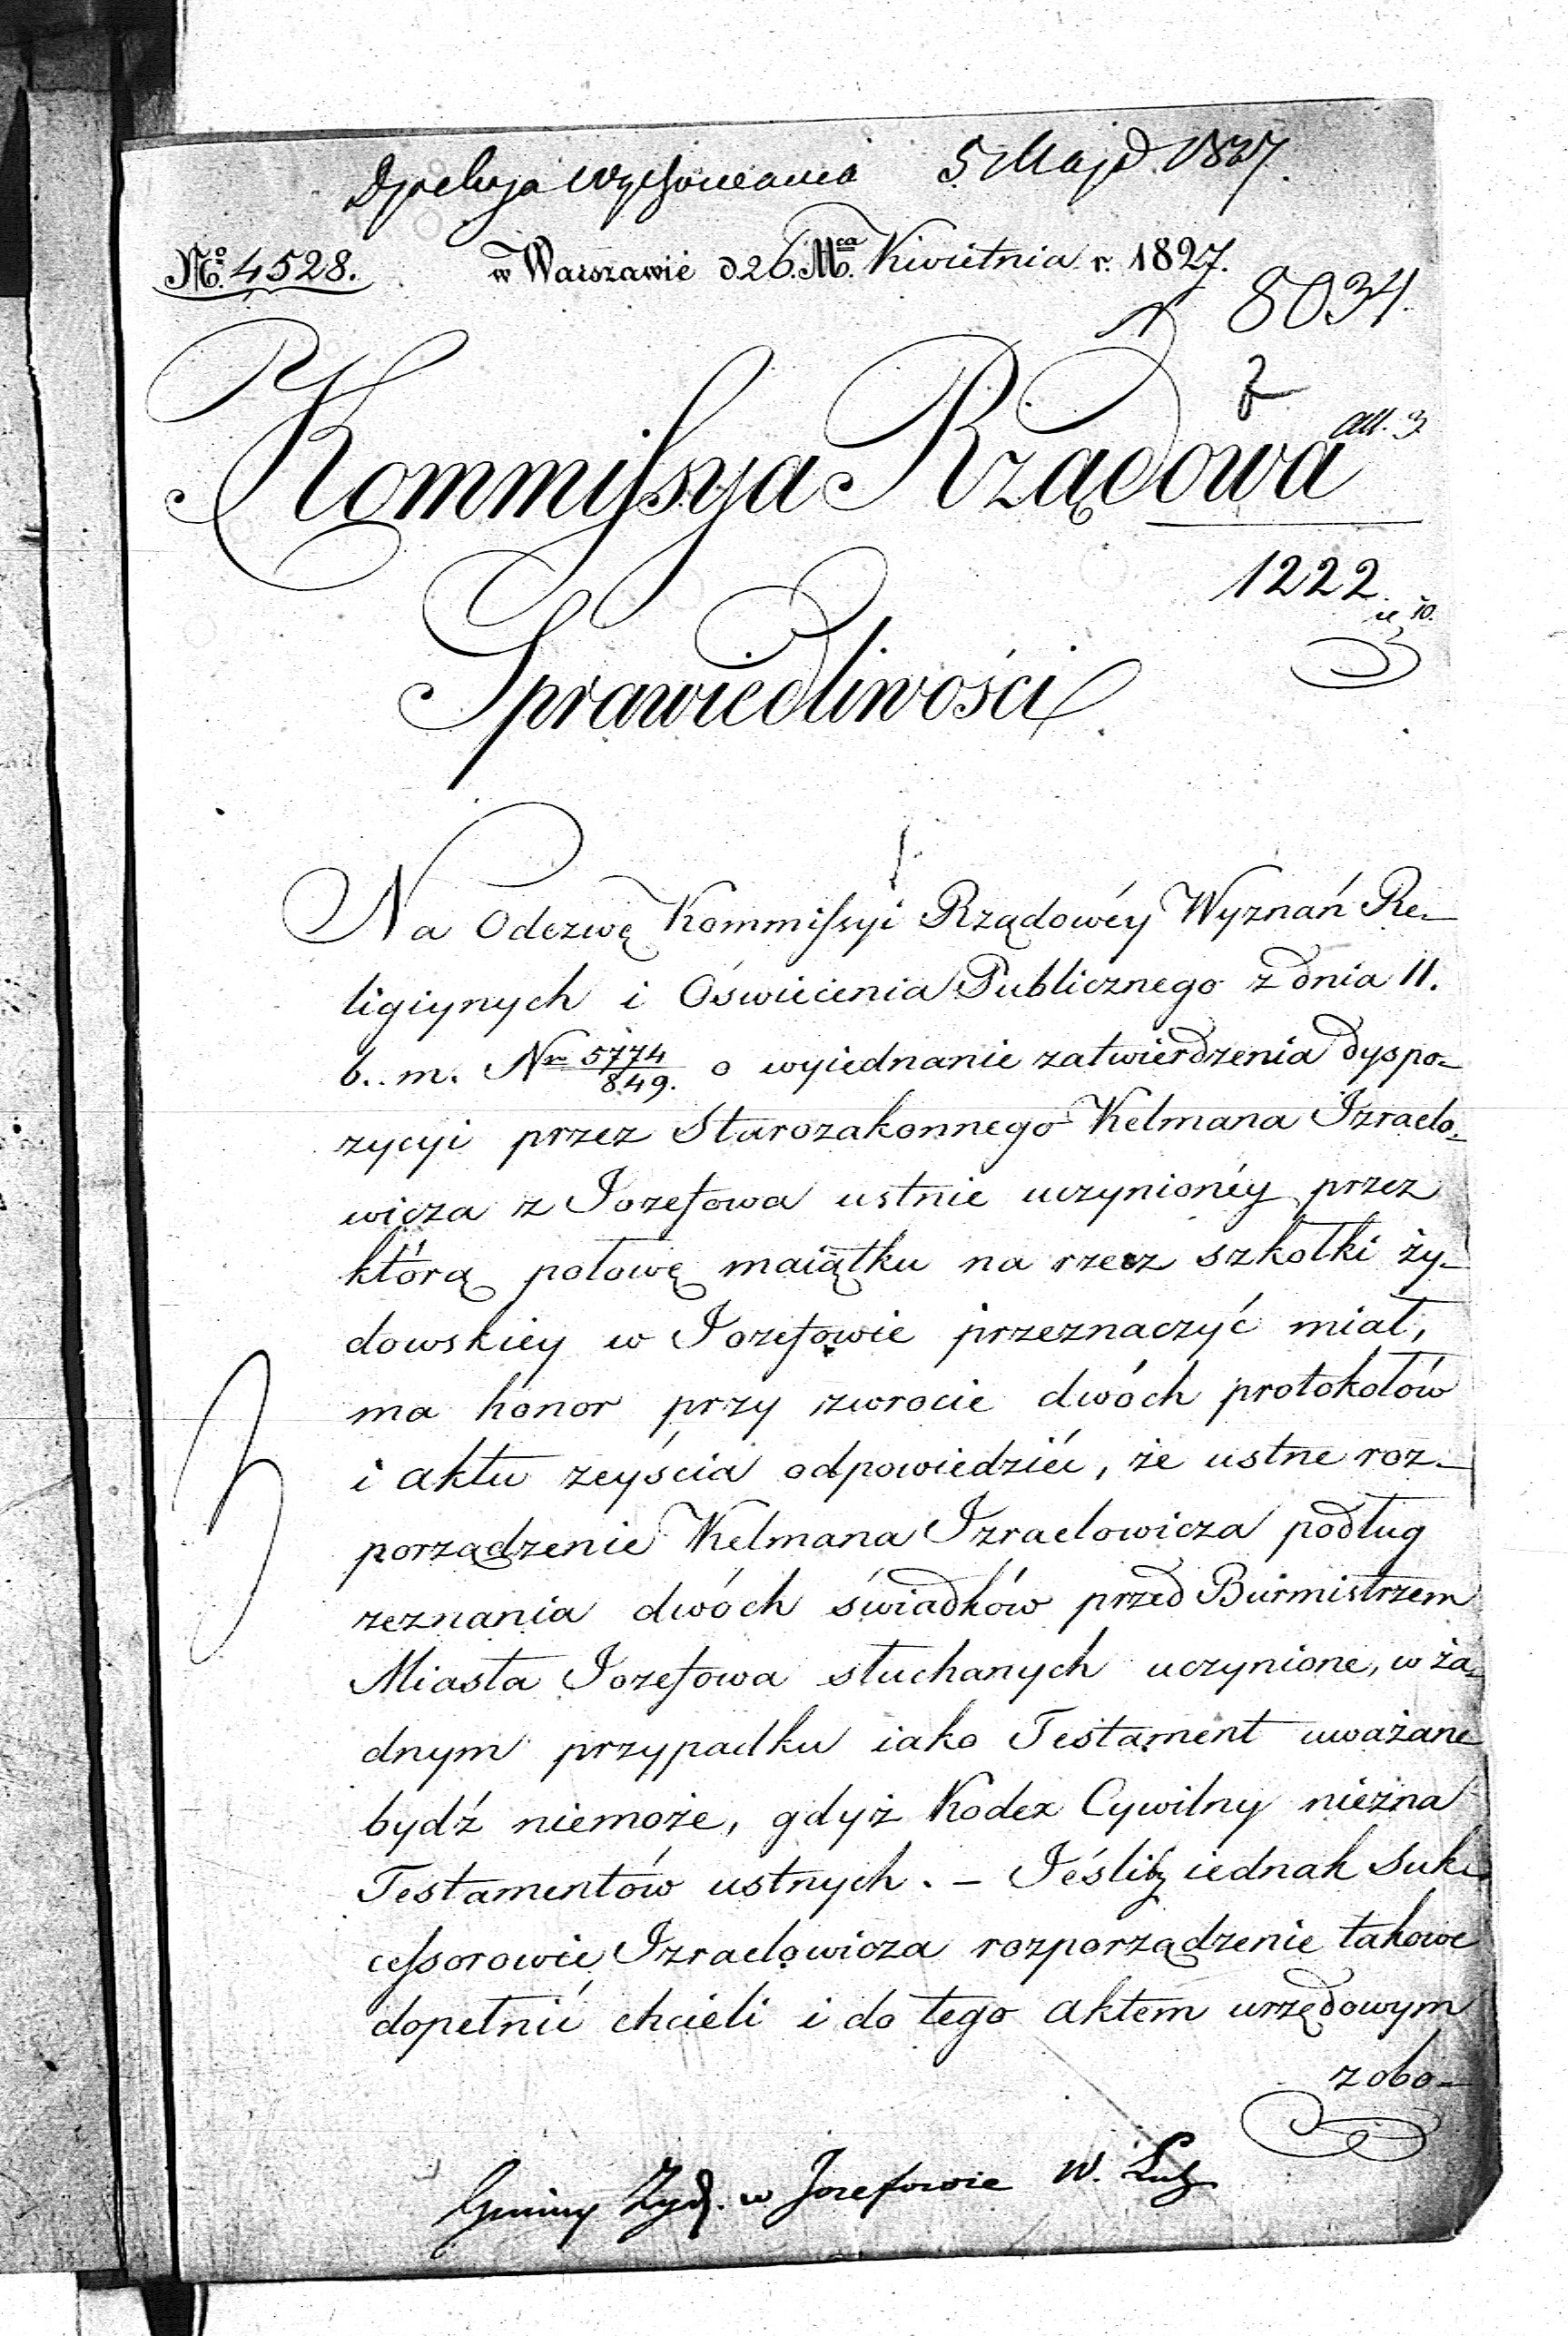 Wychowania 5 Maja 1827.
No. 4528. w Warszawie d 26. Mca Kwietnia r. 1827.
N 8034.
all. 3
Kommissya Rządowa
1222
Sprawiedliwości
Na Odezwę Kommissyi Rządowéy Wyznań Re-
ligiynych i Oświecenia Publicznego z dnia 11.
b. m. Nr 5774/849. o wyiednanie zatwierdzenia dyspo-
zycyi przez Starozakonnego Kelmana Izraelo-
wicza z Jozefowa ustnie uczynionéy przez
którą połowę maiątku na rzecz szkołki ży-
dowskiey w Jozefowie przeznaczyć miał,
ma honor przy zwrocie dwóch protokołów
i aktu zeyścia odpowiedzieć, że ustne roz-
porządzenie Kelmana Izraelowicza podług
zeznania dwóch świadków przed Burmistrzem
Miasta Jozefowa słuchanych uczynione, w ża-
dnym przypadku iako Testament uważane
bydź niemoże, gdyż Kodex Cywilny niezna
Testamentów ustnych. – Jeśliby iednak Suk-
cessorowie Izraelowicza rozporządzenie takowe
dopełnić chcieli i do tego aktem urzędowym
zobo-
Gminy Żyd. w Jozefowie W. Lub